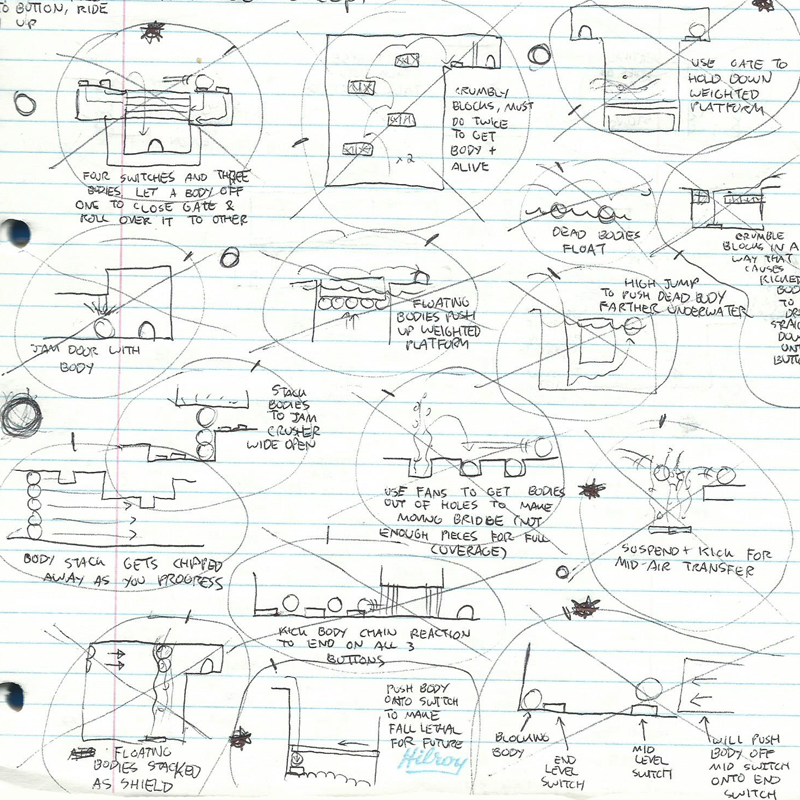 TO BUTTON, RIDE
UP
FOUR SWITCHES AND THREE
BODIES. LET A BODY OFF
ONE TO CLOSE GATE &
ROLL OVER IT TO OTHER
CRUMBLY
BLOCKS, MUST
DO TWICE
TO GET
BODY +
ALIVE
x2
USE GATE TO
HOLD DOWN
WEIGHTED
PLATFORM
DEAD BODIES
FLOAT
CRUMBLE
BLOCKS IN A
WAY THAT
CAUSES
KICKED
TO
JAM DOOR WITH
BODY
FLOATING
BODIES PUSH
UP WEIGHTED
PLATFORM
HIGH JUMP
TO PUSH DEAD BODY
FARTHER UNDERWATER
STACK
BODIES
TO JAM
CRUSHER
WIDE OPEN
BODY STACK GETS CHIPPED
AWAY AS YOU PROGRESS
USE FANS TO GET BODIES
OUT OF HOLES TO MAKE
MOVING BRIDGE (NOT
ENOUGH PIECES FOR FULL
COVERAGE)
SUSPEND + KICK FOR
MID-AIR TRANSFER
KICK BODY CHAIN REACTION
TO END ON ALL 3
BUTTONS
FLOATING
BODIES STACKED
AS SHIELD
PUSH BODY
ONTO SWITCH
TO MAKE
FALL LETHAL
FOR FUTURE
Hilroy
BLOCKING
BODY
END
LEVEL
SWITCH
MID
LEVEL
SWITCH
WILL PUSH
BODY OFF
MID SWITCH
ONTO END
SWITCH